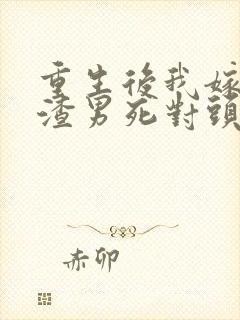 重生後我嫁
渣男死對頭
赤卯